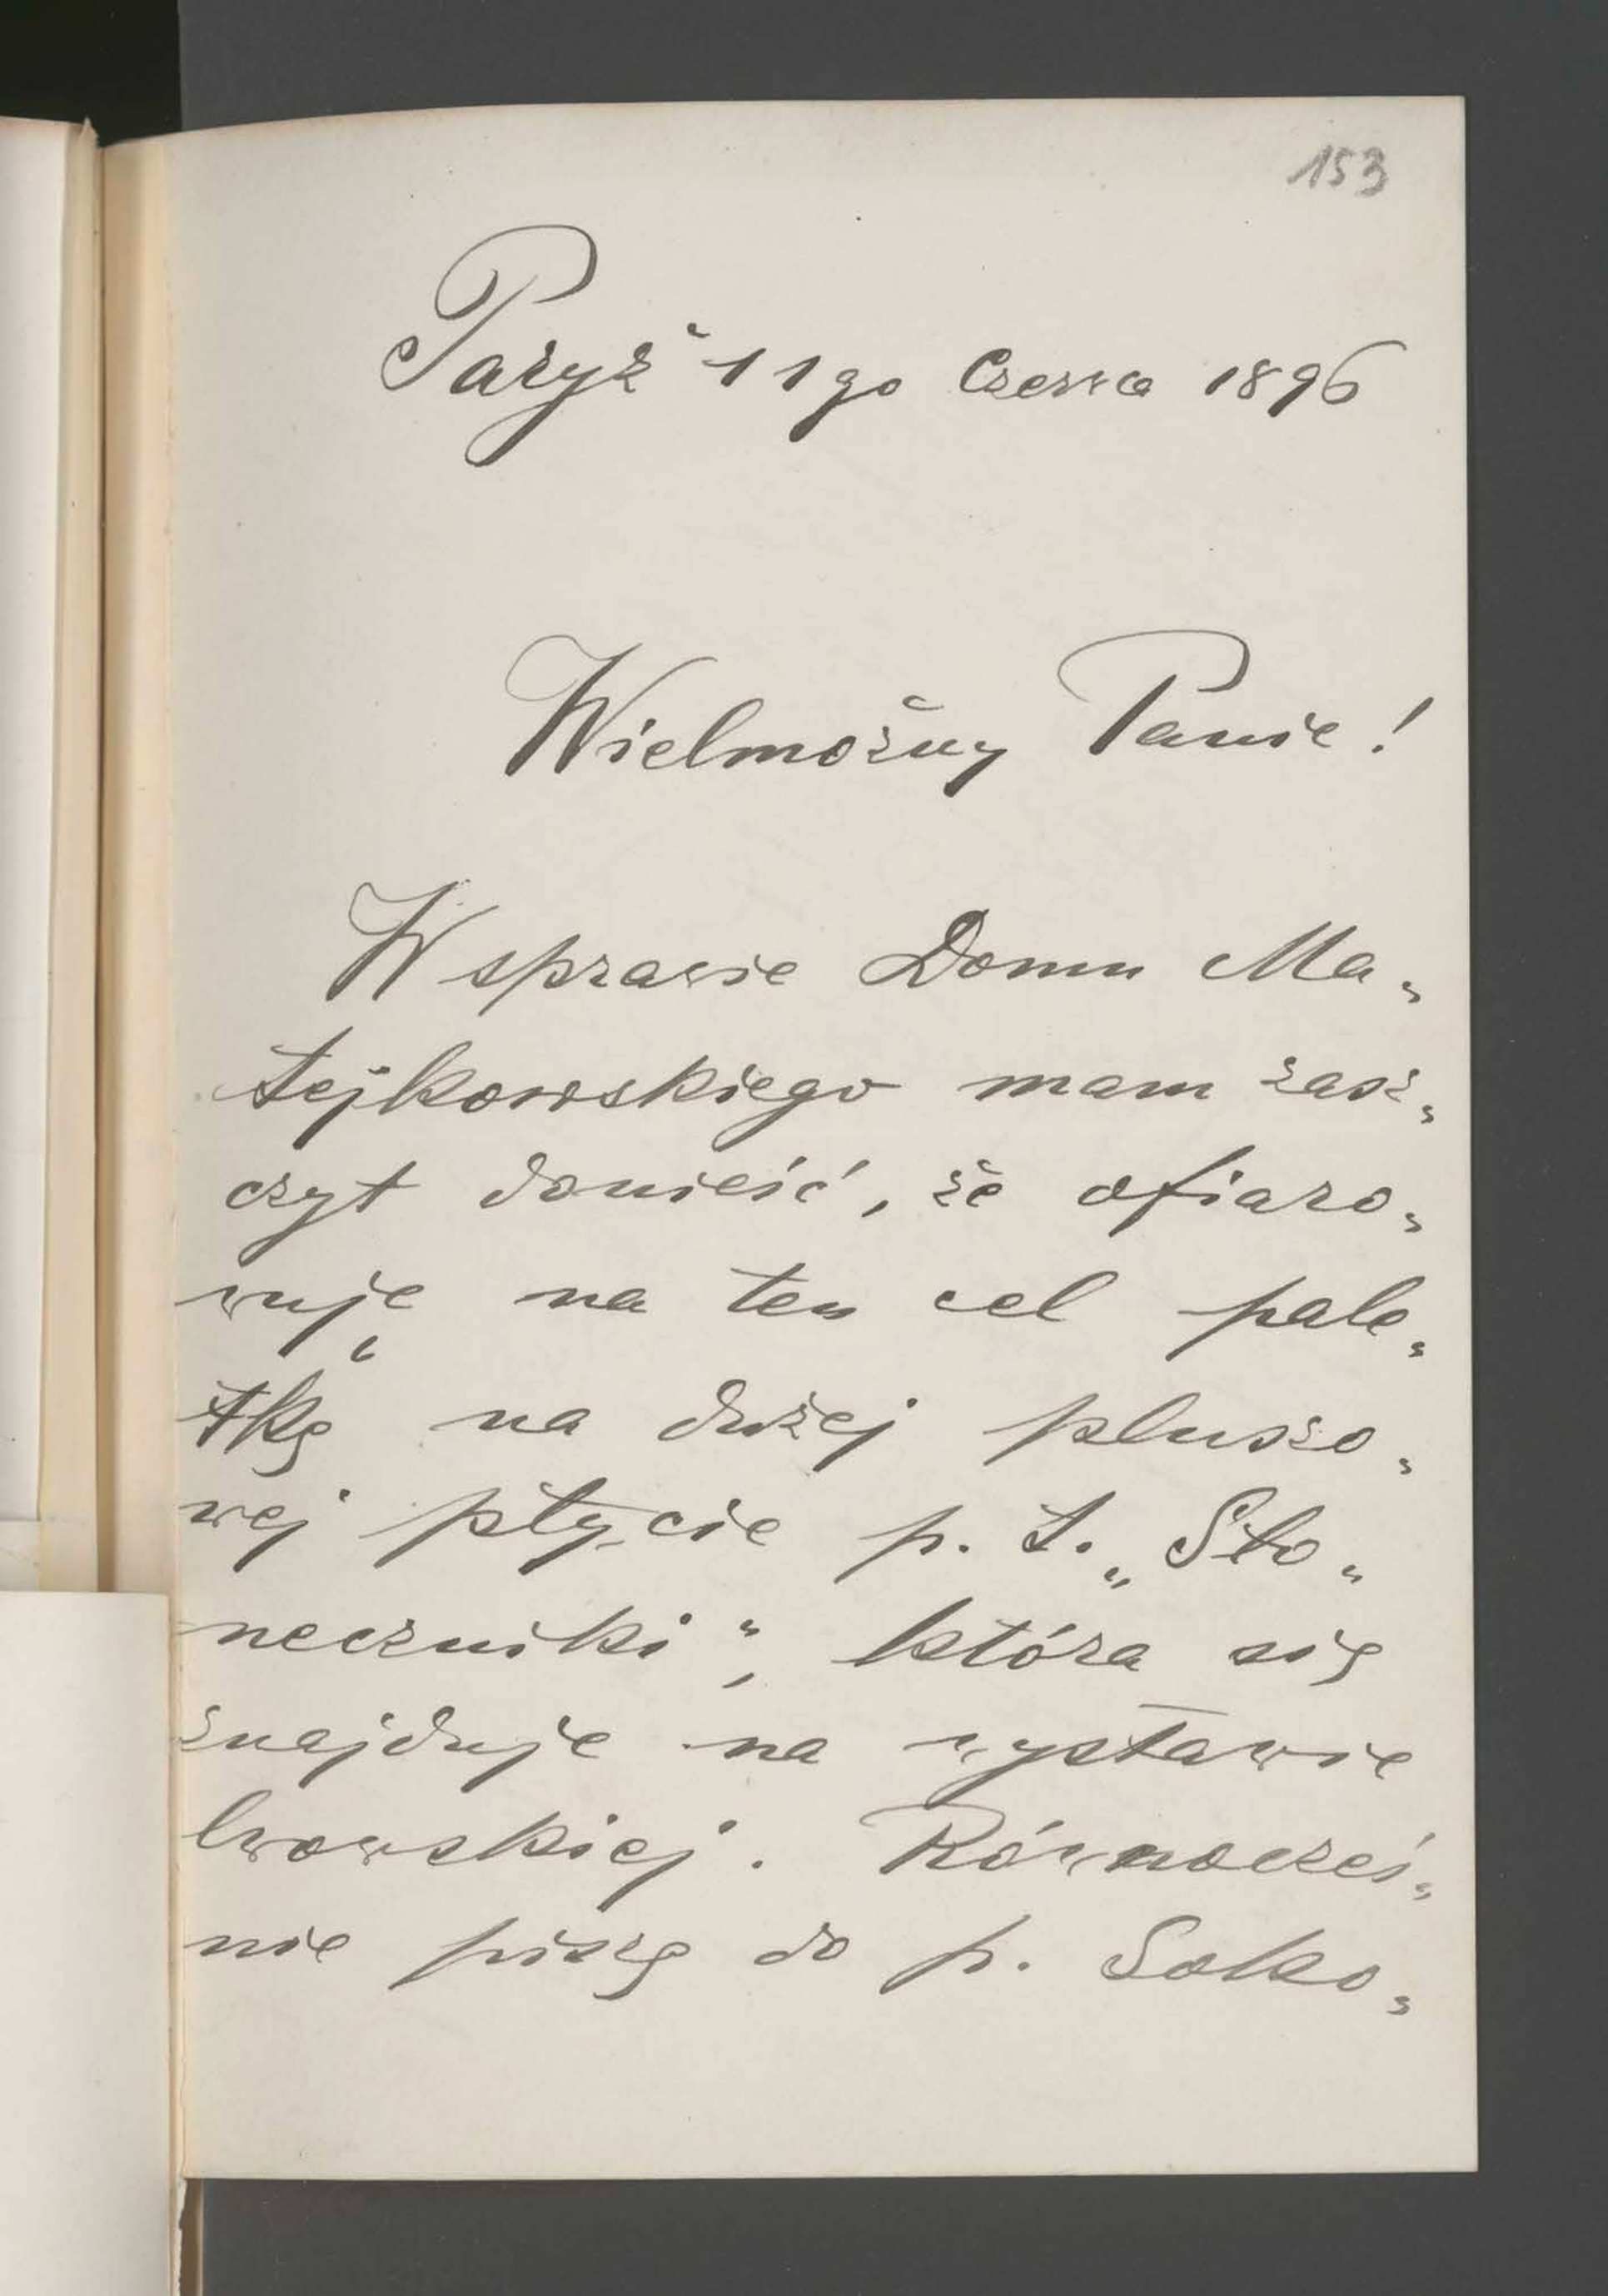 153
Paryż 11go Czerwca 1896
Wielmożny Panie!
W sprawie Domu Ma„
tejkowskiego mam zasz„
czyt donieść, że ofiaro„
wuję na ten cel pale„
tkę na dużej pluszo„
wej płycie p. t. „Sło„
neczniki“, która się
znajduje na wystawie
lwowskiej. Równocześ„
nie piszę do p. Soko„